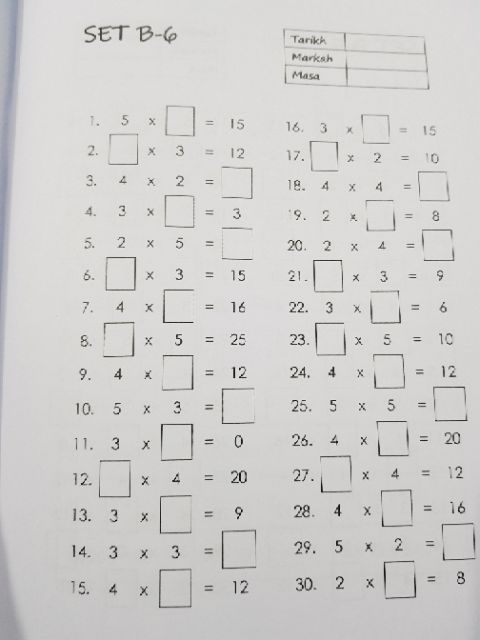 SET B-6
Tarikh
Markah
Masa
1. 5 x □ = 15
2. □ x 3 = 12
3. 4 x 2 = □
4. 3 x □ = 3
5. 2 x 5 = □
6. □ x 3 = 15
7. 4 x □ = 16
8. □ x 5 = 25
9. 4 x □ = 12
10. 5 x 3 = □
11. 3 x □ = 0
12. □ x 4 = 20
13. 3 x □ = 9
14. 3 x 3 = □
15. 4 x □ = 12
16. 3 x □ = 15
17. □ x 2 = 10
18. 4 x 4 = □
19. 2 x □ = 8
20. 2 x 4 = □
21. □ x 3 = 9
22. 3 x □ = 6
23. □ x 5 = 10
24. 4 x □ = 12
25. 5 x 5 = □
26. 4 x □ = 20
27. □ x 4 = 12
28. 4 x □ = 16
29. 5 x 2 = □
30. 2 x □ = 8